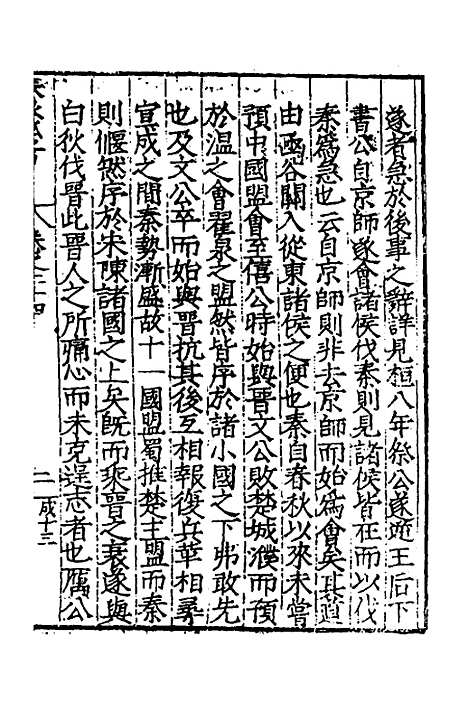 遂者急於後事之辭詳見桓八年祭公遂逆王后下
書公自京師遂會諸侯伐秦則見諸侯皆在而以伐
秦為急也云自京師則非去京師而始為會矣其道
由函谷關入從東諸侯之便也秦自春秋以來未嘗
預中國盟會至僖公時始與晉文公敗楚城濮而預
於溫之會翟泉之盟然皆序於諸小國之下弗敢先
也及文公卒而始與晉抗其後互相報復兵革相尋
宣成之間秦勢漸盛故十一國盟蜀推楚主盟而秦
則偃然序於宋陳諸國之上矣既而乘晉之衰遂與
白狄伐晉此晉人之所痛心而未克逞志者也厲公
卷之十四
二
成十三